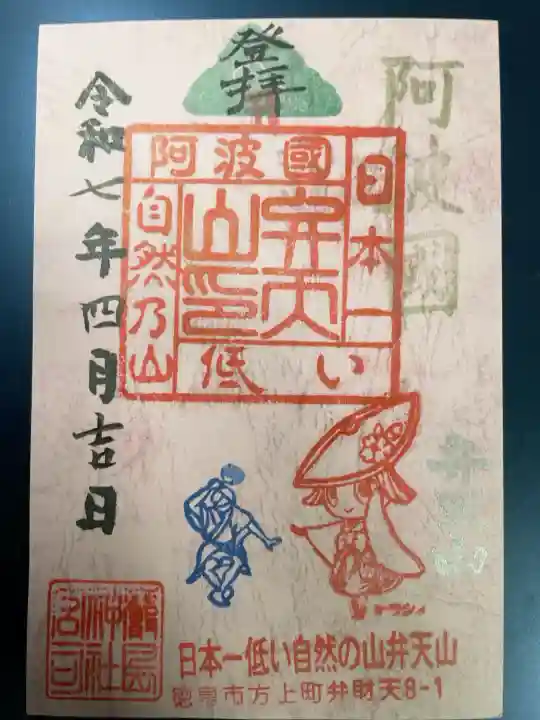 登拝
阿波國
令和七年四月吉日
阿波國
日本一
低い
自然乃山
弁天
山印
日本一低い自然の山弁天山
徳島市方上町弁財天8-1